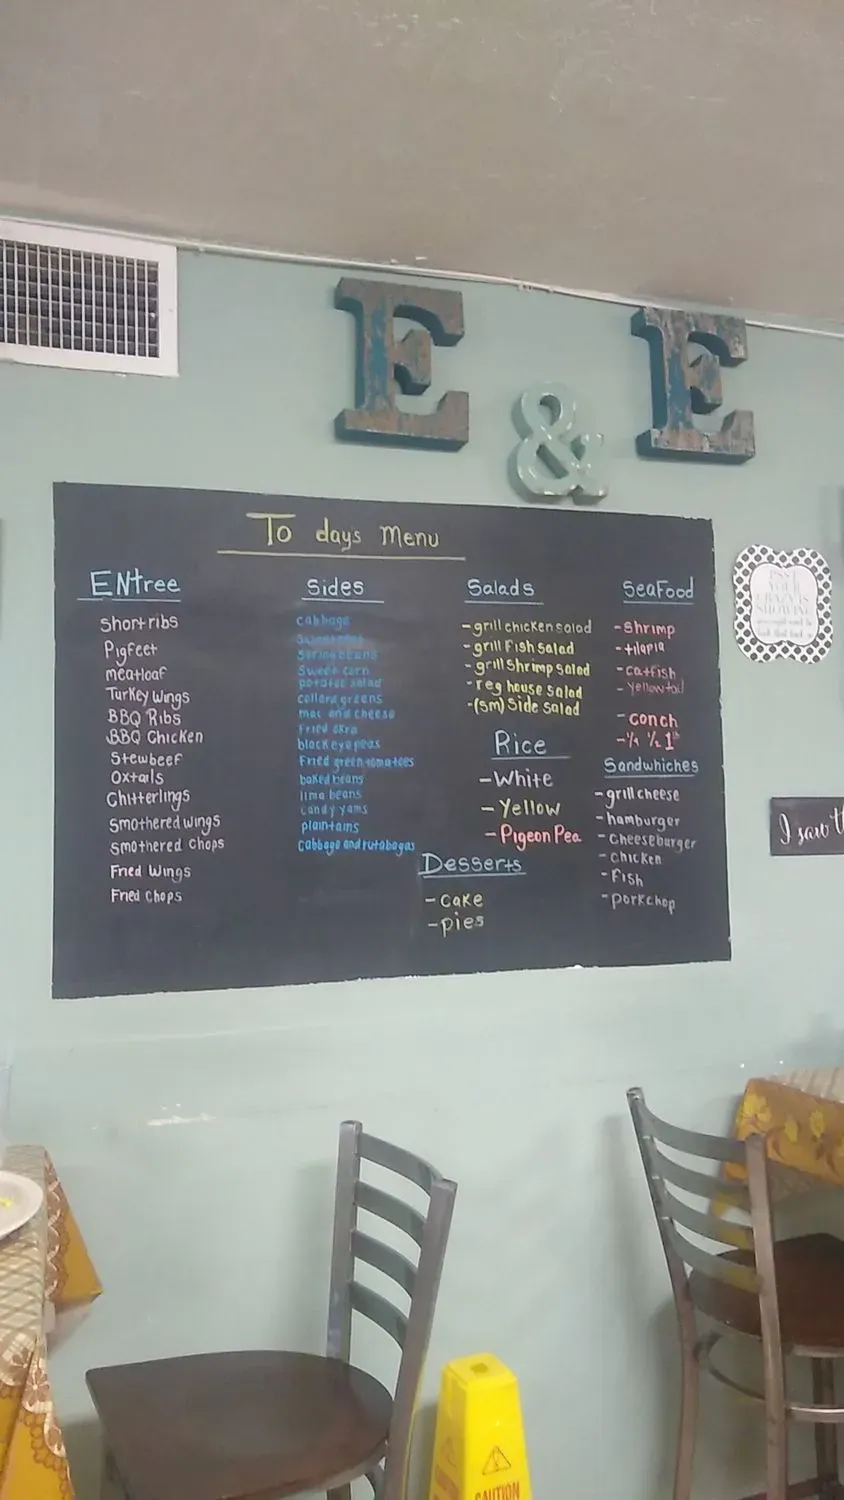 E & E
To days Menu
ENtree
Shortribs
Pigfeet
meatloaf
Turkey Wings
BBQ Ribs
BBQ Chicken
Stewbeef
Oxtails
Chitterlings
Smothered wings
Smothered Chops
Fried Wings
Fried Chops
Sides
cabbage
String beans
Sweet corn
potatoe salad
collard greens
mac and cheese
Fried okra
blackeyepeas
Fried green tomatoes
baked beans
lima beans
candy yams
plaintains
cabbage and rutabagas
Salads
-grill chicken salad
-grill Fish salad
-grill Shrimp salad
-reg house salad
-(sm) Side salad
Rice
-White
-Yellow
-Pigeon Pea
Desserts
-cake
-pies
SeaFood
-Shrimp
-tilapia
-catfish
-yellowtail
-conch
-¼ ½ 1
Sandwhiches
-grill cheese
-hamburger
-Cheeseburger
-chicken
-Fish
-porkchop
YOUR
CRAZY IS
SHOWING
I saw
CAUTION